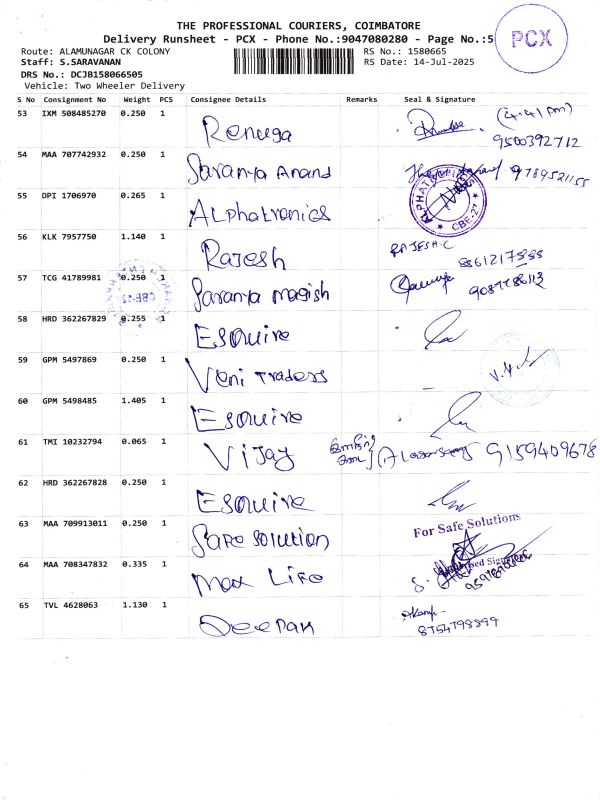 THE PROFESSIONAL COURIERS, COIMBATORE
Delivery Runsheet - PCX - Phone No.:9047080280 - Page No.:5
PCX
Route: ALAMUNAGAR CK COLONY RS No.: 1580665
Staff: S.SARAVANAN RS Date: 14-Jul-2025
DRS No.: DCJB158066505
Vehicle: Two Wheeler Delivery
S No Consignment No Weight PCS Consignee Details Remarks Seal & Signature
53 IXM 508485270 0.250 1 Renuga (4.41 pm)
9500392712
54 MAA 707742932 0.250 1 Saranya Anand 9789521155
55 DPI 1706970 0.265 1 Alphatronics CBE-27
56 KLK 7957750 1.140 1 Rajesh RAJESH-C
57 TCG 41789981 0.250 1 Saranya Magish
58 HRD 362267829 0.255 1 Esquire
59 GPM 5497869 0.250 1 Veni Traders
60 GPM 5498485 1.405 1 Esquire
61 TMI 10232794 0.065 1 Vijay 9159409678
62 HRD 362267828 0.250 1 Esquire
63 MAA 709913011 0.250 1 Safe Solution For Safe Solutions
64 MAA 708347832 0.335 1 Max Life
65 TVL 4628063 1.130 1 Deepak
8754798899